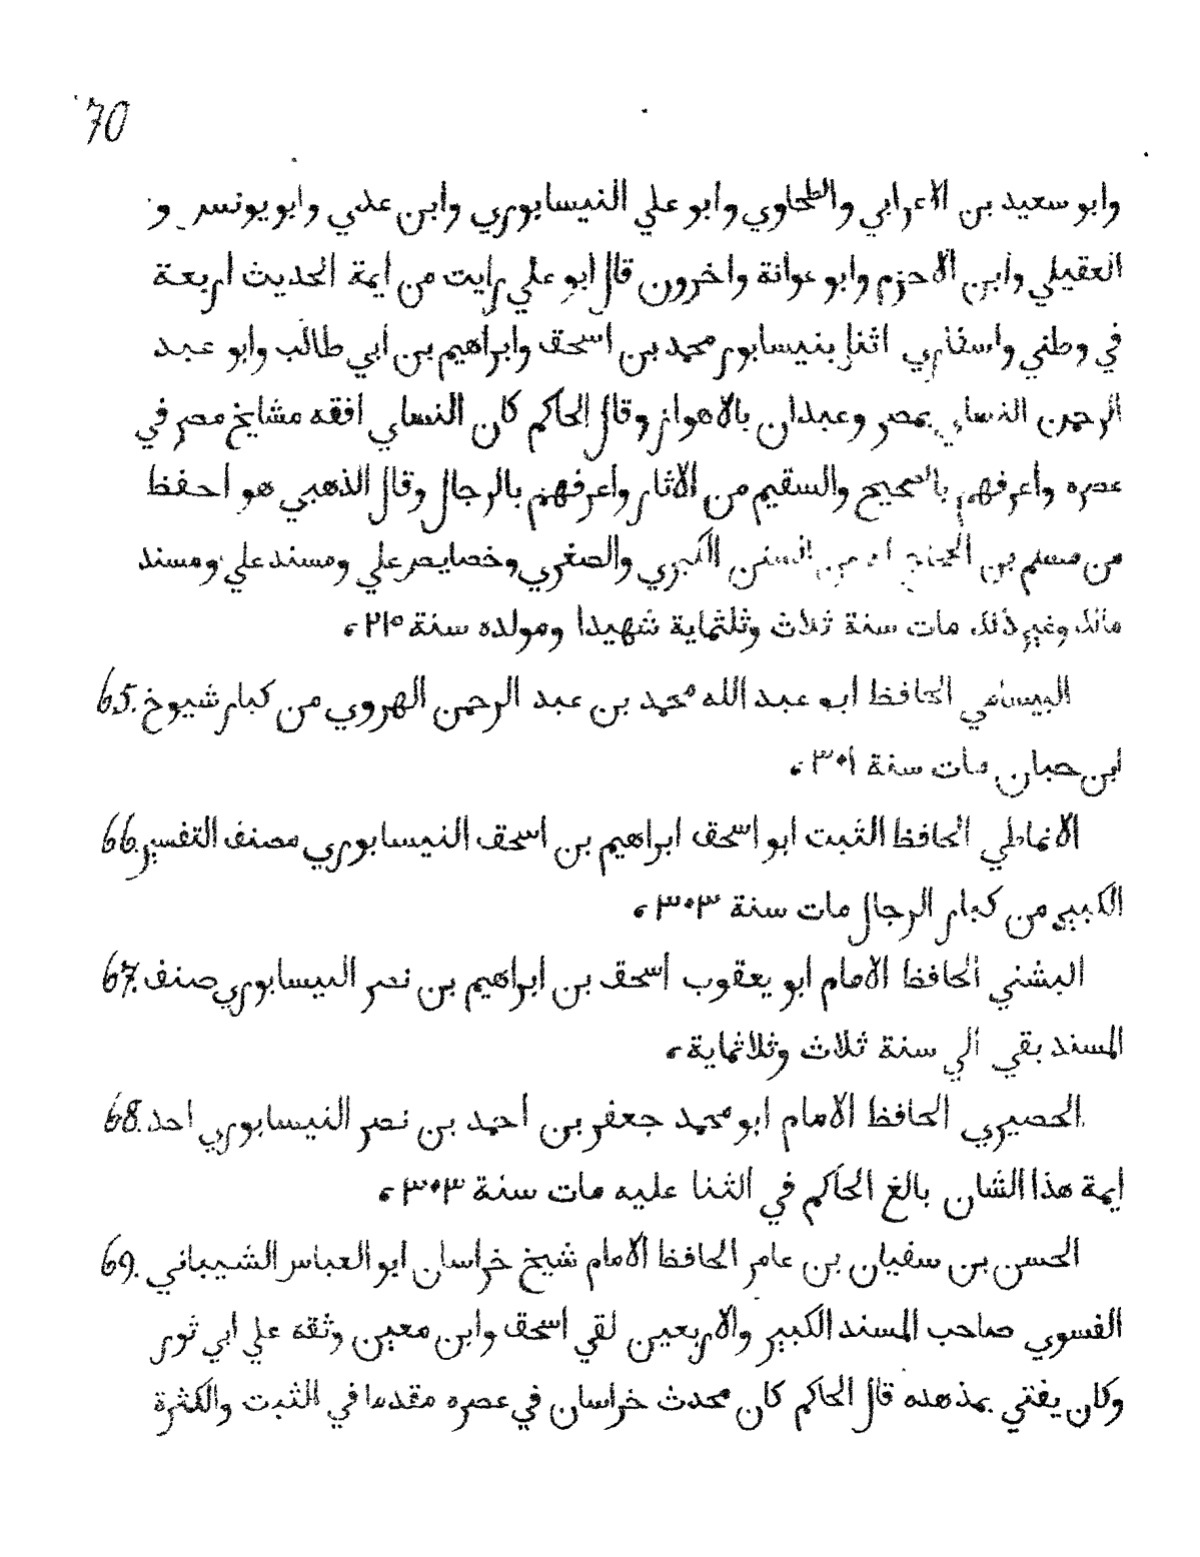 70
وابو سعيد بن الاعرابي والطحاوي وابو علي النيسابوري وابن عدي وابو يونس و
العقيلي وابن الاحزم وابو عوانة واخرون قال ابو علي رايت من ايمة الحديث اربعة
في وطني واسفاري اثنا بنيسابور محمد بن اسحق وابراهيم بن ابي طالب وابو عبد
الرحمن النساي بمصر وعبدان بالاهواز وقال الحاكم كان النساي افقه مشايخ مصر في
عصره واعرفهم بالصحيح والسقيم من الاثار واعرفهم بالرجال وقال الذهبي هو احفظ
من مسلم بن الحجاج السنن الكبري والصغري وخصايص علي ومسند علي ومسند
مالك وغير ذلك مات سنة ثلاث وثلثماية شهيدا ومولده سنة ٢١٥
البيسامي الحافظ ابو عبد الله محمد بن عبد الرحمن الهروي من كبار شيوخ .65
ابن حبان مات سنة ٣٠١
الانماطي الحافظ الثبت ابو اسحق ابراهيم بن اسحق النيسابوري مصنف التفسير .66
الكبير من كبار الرجال مات سنة ٣٠٣
البشني الحافظ الامام ابو يعقوب اسحق بن ابراهيم بن نصر النيسابوري صنف .67
المسند بقي الي سنة ثلاث وثلاثماية
الحصيري الحافظ الامام ابو محمد جعفر بن احمد بن نصر النيسابوري احد .68
ايمة هذا الشان بالغ الحاكم في الثنا عليه مات سنة ٣٠٣
الحسن بن سفيان بن عامر الحافظ الامام شيخ خراسان ابو العباس الشيباني .69
الفسوي صاحب المسند الكبير والاربعين لقي اسحق وابن معين وثقه علي ابي ثور
وكان يفتي بمذهبه قال الحاكم كان محدث خراسان في عصره مقدما في الثبت والكثرة